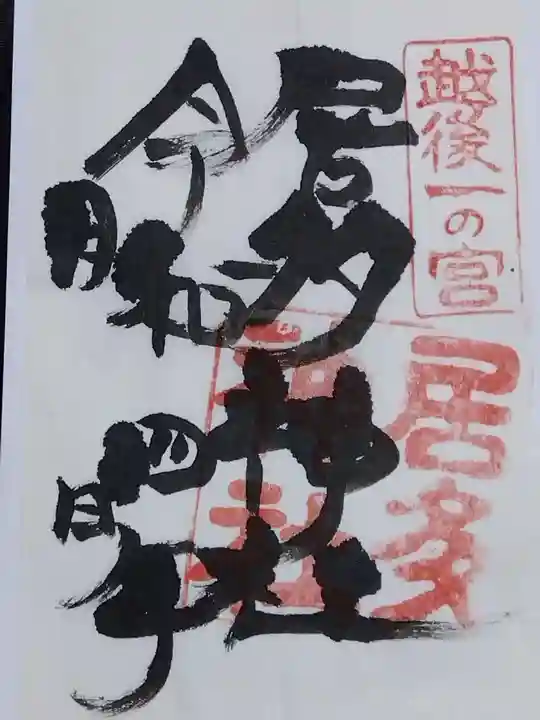 越後一の宮
居多
神社
居多神社
令和四年
月
日